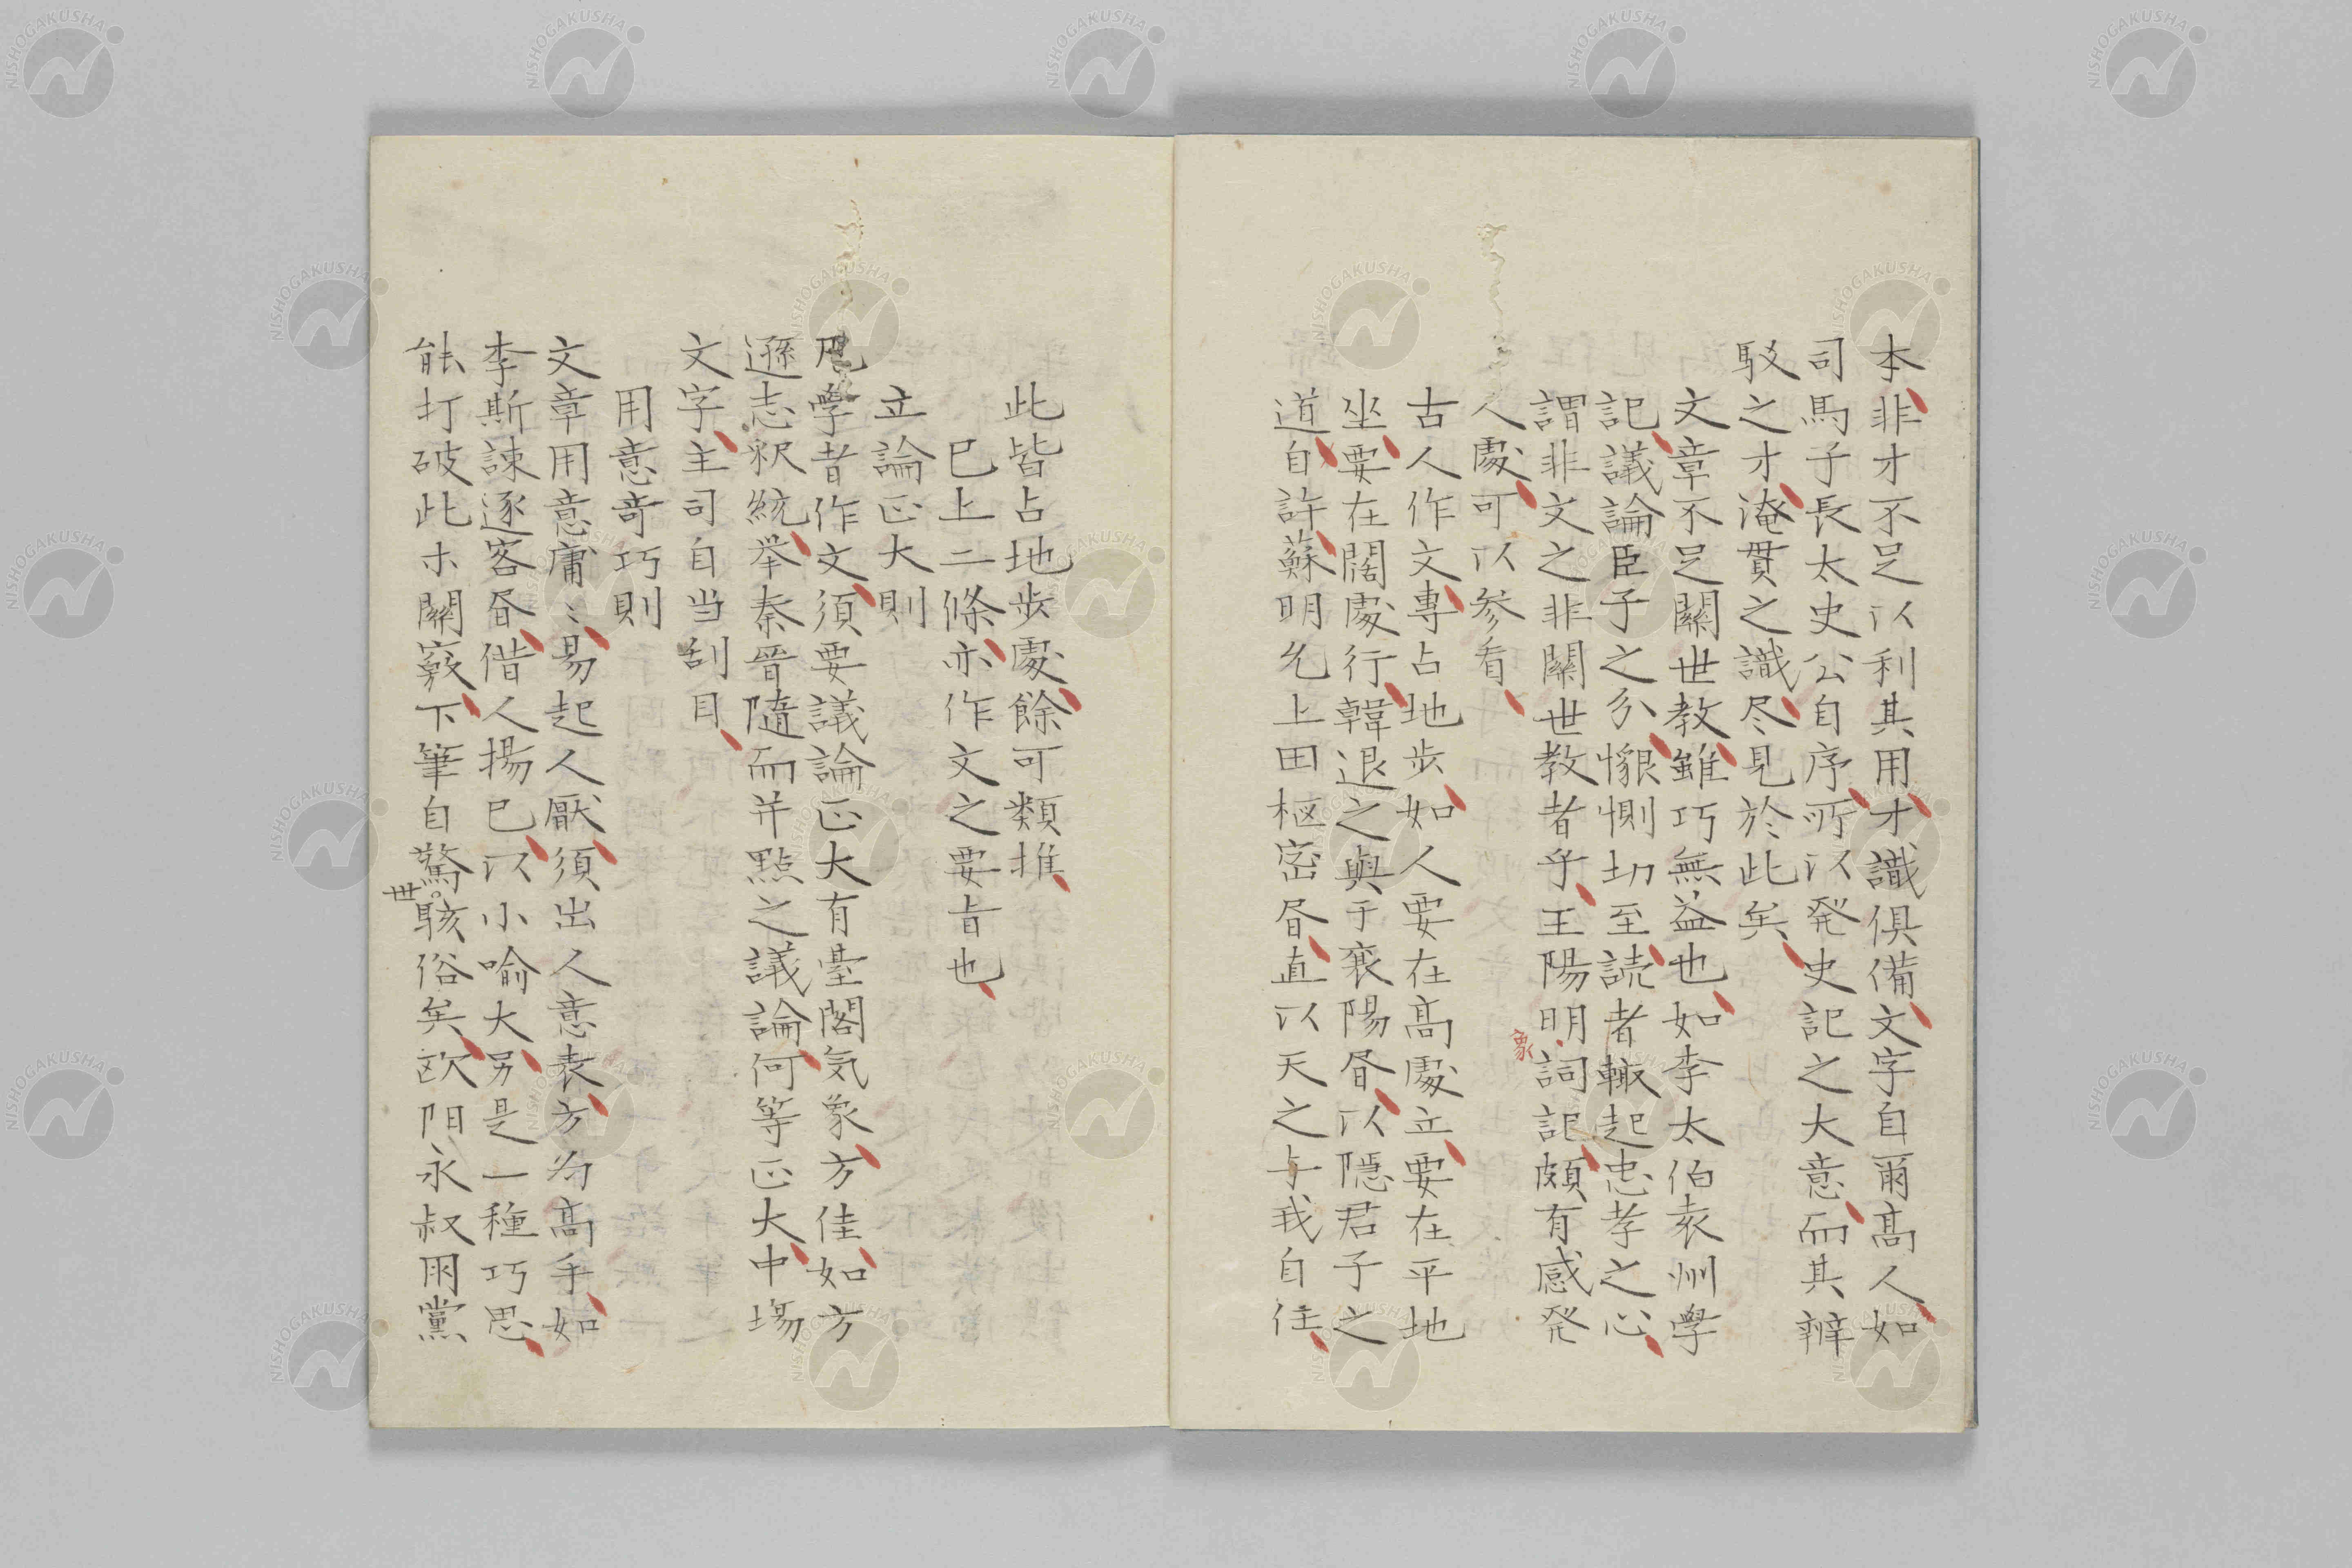 本非才不足以利其用才識俱備文字自爾高人如
司馬子長太史公自序所以発史記之大意而其辨
駁之才淹貫之識尽見於此矣
文章不足關世教雖巧無益也如李太伯袁州學
記議論臣子之分懇惻切至読者輙起忠孝之心
謂非文之非關世教者乎王陽明詞記頗有感発
象
人處可以参看
古人作文專占地步如人要在高處立要在平地
坐要在闊處行韓退之與于襄陽書以隠君子之
道自許蘇明允上田枢密書直以天之与我自任
此皆占地步處餘可類推
已上二條亦作文之要旨也
立論正大則
凡學者作文須要議論正大有臺閣気象方佳如方
遜志釈統挙秦晋隨而并點之議論何等正大中場
文字主司自当刮目
用意奇巧則
文章用意庸〻易起人厭須出人意表方為高手如
李斯諫逐客書借人揚己以小喻大另是一種巧思
能打破此木關竅下筆自驚駭俗矣欧阳永叔朋黨
世
NISHOGAKUSHA